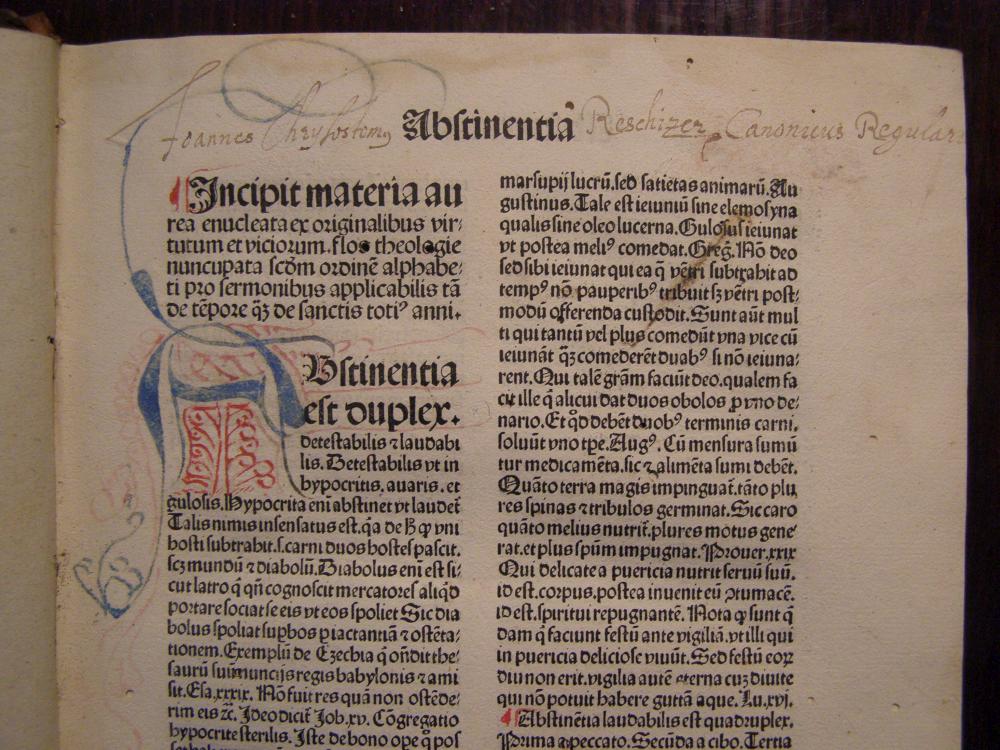 Joannes Chrysostomꝯ Abstinentia Reschizer Canonicus Regular
Incipit materia au
rea enucleata ex originalibus vir⸗
tutum et viciorum. flos theologie
nuncupata scdm ordinē alphabe⸗
ti pro sermonibus applicabilis tā
de tēpore qꝫ de sanctis totiꝯ anni.
ABstinentia
est duplex.
detestabilis ⁊ laudabi
lis. Detestabilis vt in
hypocritis. auaris. et
gulosis. Hypocrita eni abstinet vt laudet̄
Talis nimis insensatus est. q̄a de ꝙ vni
hosti subtrahit. s. carni duos hostes pascit.
scꝫ mundū ⁊ diabolū. Diabolus eni est si⸗
cut latro q̄ qn̄ cognoscit mercatores aliqd
portare sociat se eis vt eos spoliet Sic dia
bolus spoliat supbos p iactantiā ⁊ ostēta⸗
tionem. Exemplū de Ezechia q̄ oñdit the⸗
saurū suū nuncijs regis babylonis ⁊ ami
sit. Esa. xxxix. Nō fuit res quā non ostēde⸗
rim eis ⁊c. Ideo dicit Job. xv. Cōgregatio
hypocrite sterilis. Iste de bono ope q̄ pos
marsupij lucrū. sed satietas animarū. Au
gustinus. Tale est ieiuniū sine elemosyna
qualis sine oleo lucerna. Gulosus ieiunat
vt postea meliꝯ comedat. Greg. Nō deo
sed sibi ieiunat qui ea q̄ vētri subtrahit ad
tempꝯ nō pauperibꝯ tribuit sꝫ vētri post⸗
modū offerenda custodit. Sunt aūt mul
ti qui tantū vel plus comedūt vna vice cū
ieiunāt qꝫ comederēt duabꝯ si nō ieiuna⸗
rent. Qui talē grām faciūt deo. qualem fa
cit ille q̄ alicui dat duos obolos p vno de⸗
nario. Et qd debēt duobꝯ terminis carni.
soluūt vno tpe. Augꝯ. Cū mensura sumū
tur medicamēta. sic ⁊ alimēta sumi debēt.
Quāto terra magis impinguat̄. tāto plu
res spinas ⁊ tribulos germinat. Sic caro
quāto melius nutrit̄. plures motus gene⸗
rat. et plus spūm impugnat. Prouer. xxix
Qui delicate a puericia nutrit seruū suū.
id est. corpus. postea inueniet eū ꝯtumacē.
id est. spiritui repugnantē. Nota ꝙ sunt q̄
dam q̄ faciunt festū ante vigiliā. vt illi qui
in puericia deliciose viuūt. Sed festū eoꝝ
diu non erit. vigilia autē eterna cuꝫ diuite
qui nō potuit habere guttā aque. Lu. xvj.
Abstinētia laudabilis est quadruplex.
Prima a peccato. Secūda a cibo. Tertia